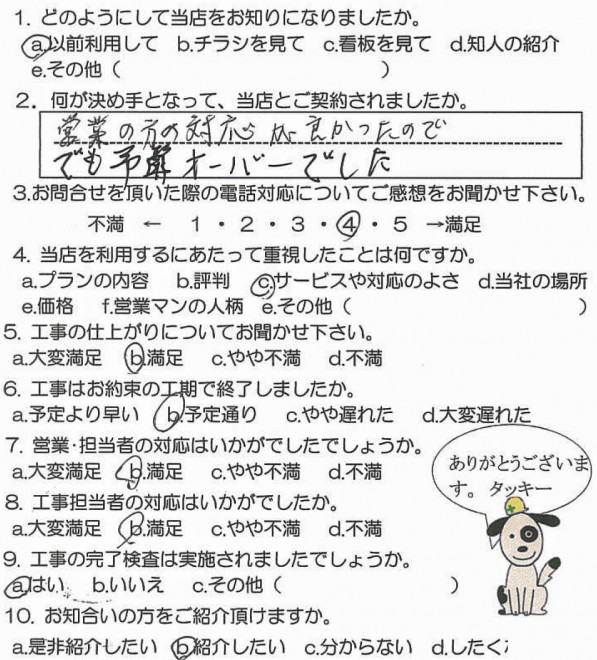 1. どのようにして当店をお知りになりましたか。
a.以前利用して b.チラシを見て c.看板を見て d.知人の紹介
e.その他( )
2. 何が決め手となって、当店とご契約されましたか。
営業の方の対応が良かったので
でも予算オーバーでした
3.お問合せを頂いた際の電話対応についてご感想をお聞かせ下さい。
不満 ← 1・2・3・4・5 →満足
4. 当店を利用するにあたって重視したことは何ですか。
a.プランの内容 b.評判 c.サービスや対応のよさ d.当社の場所
e.価格 f.営業マンの人柄 e.その他( )
5. 工事の仕上がりについてお聞かせ下さい。
a.大変満足 b.満足 c.やや不満 d.不満
6. 工事はお約束の工期で終了しましたか。
a.予定より早い b.予定通り c.やや遅れた d.大変遅れた
7. 営業・担当者の対応はいかがでしたでしょうか。
a.大変満足 b.満足 c.やや不満 d.不満
8. 工事担当者の対応はいかがでしたか。
a.大変満足 b.満足 c.やや不満 d.不満
9. 工事の完了検査は実施されましたでしょうか。
a.はい b.いいえ c.その他( )
10. お知合いの方をご紹介頂けますか。
a.是非紹介したい b.紹介したい c.分からない d.したく
ありがとうございま
す。 タッキー